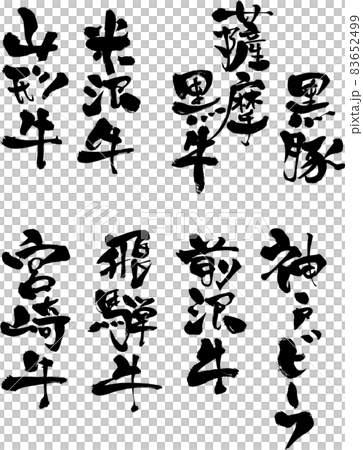 黒豚
薩摩
黒牛
米沢牛
山形牛
神戸ビーフ
前沢牛
飛騨牛
宮崎牛
PIXTA
pixta.jp - 83652499